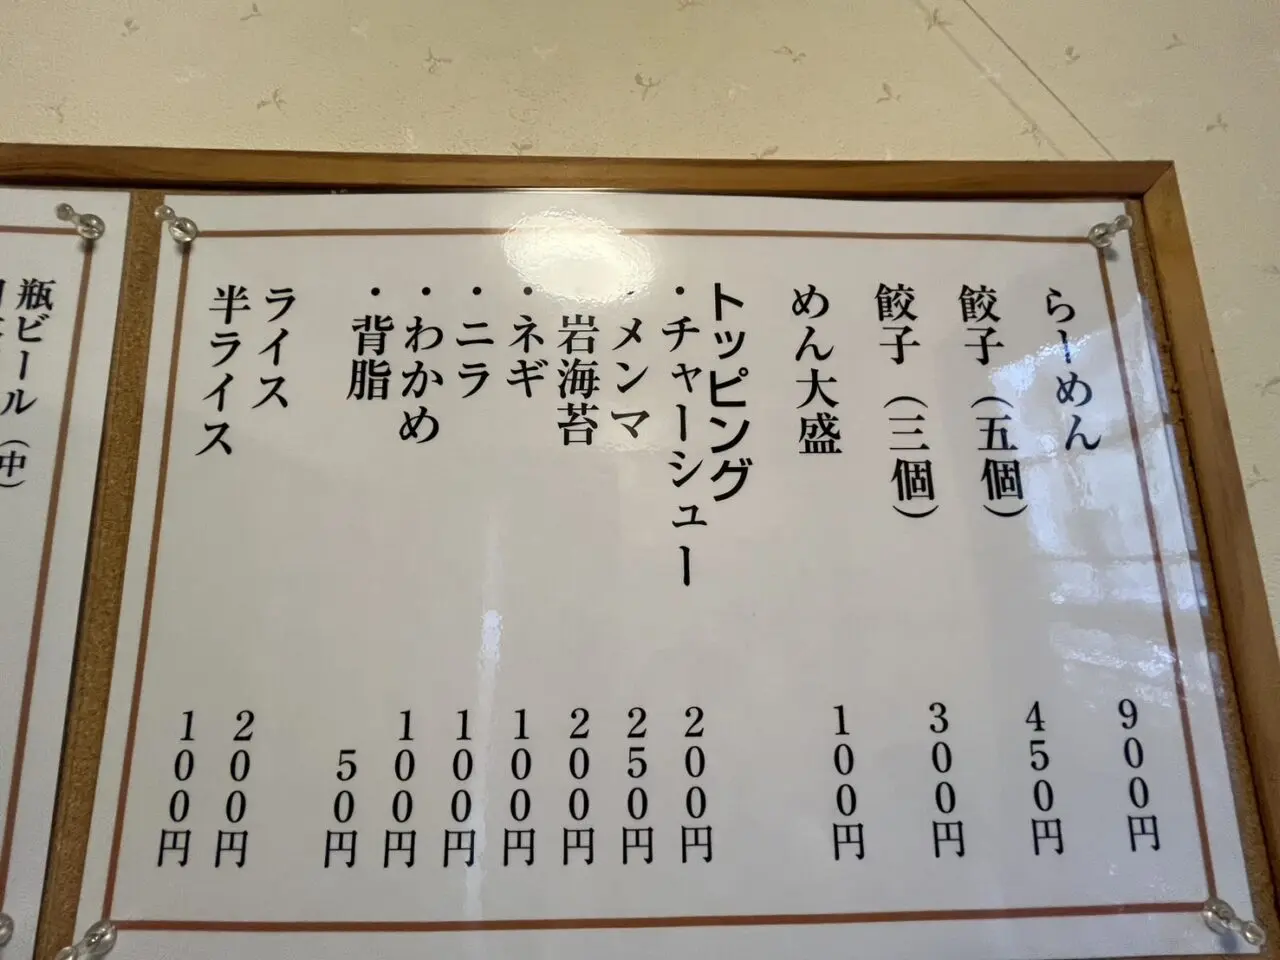 らーめん 900円
餃子（五個） 450円
餃子（三個） 300円
めん大盛 100円
トッピング
・チャーシュー 200円
・メンマ 250円
・岩海苔 200円
・ネギ 100円
・ニラ 100円
・わかめ 100円
・背脂 50円
ライス 200円
半ライス 100円
瓶ビール（中）